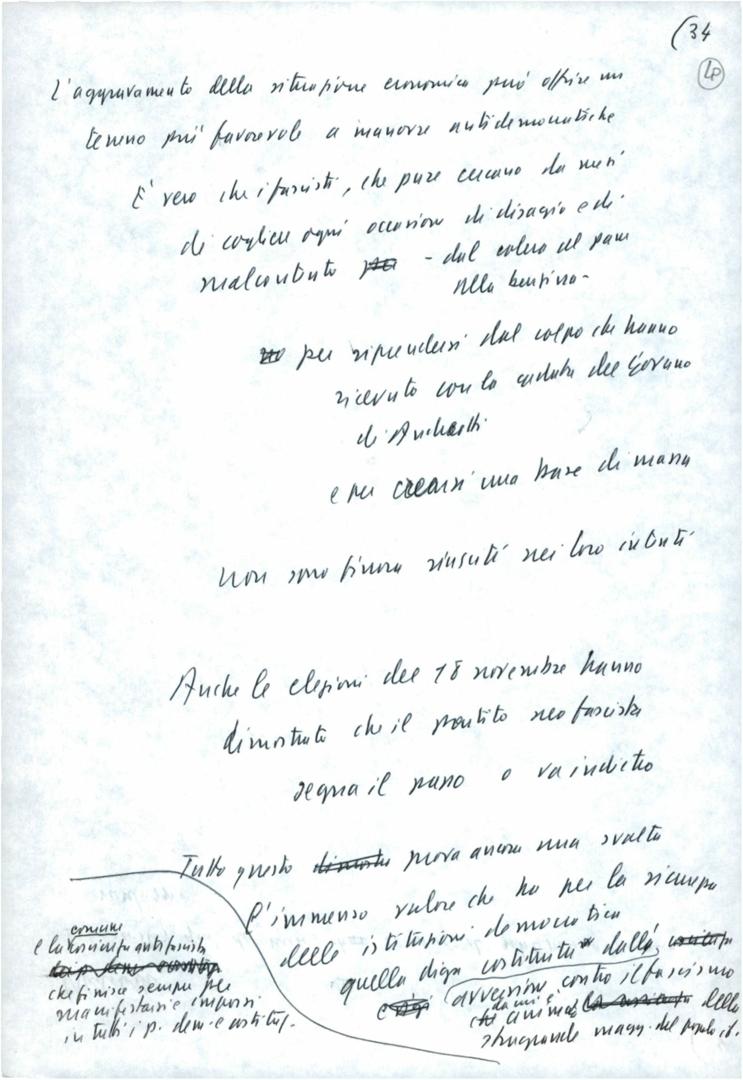 (34
LP
L'aggravamento della situazione economica può offrire un
terreno più favorevole a manovre antidemocratiche
È vero che i fascisti, che pure cercano da mesi
di cogliere ogni occasione di disagio e di
malcontento - dal colera al pane
alla benzina -
per riprendersi dal colpo che hanno
ricevuto con la caduta del Governo
di Andreotti
e per crearsi una base di massa
Non sono finora riusciti nei loro intenti
Anche le elezioni del 18 novembre hanno
dimostrato che il partito neofascista
segna il passo o va indietro
Tutto questo prova ancora una svolta
l'immenso valore che ha per la sicurezza
delle istituzioni democratica
quella diga costituita dalla
avversione contro il fascismo
che anima della
stragrande magg. del popolo it.
comune
e la coscienza antifascista
che finisce sempre per
manifestarsi e imporsi
in tutti i p. dem. e costituz.